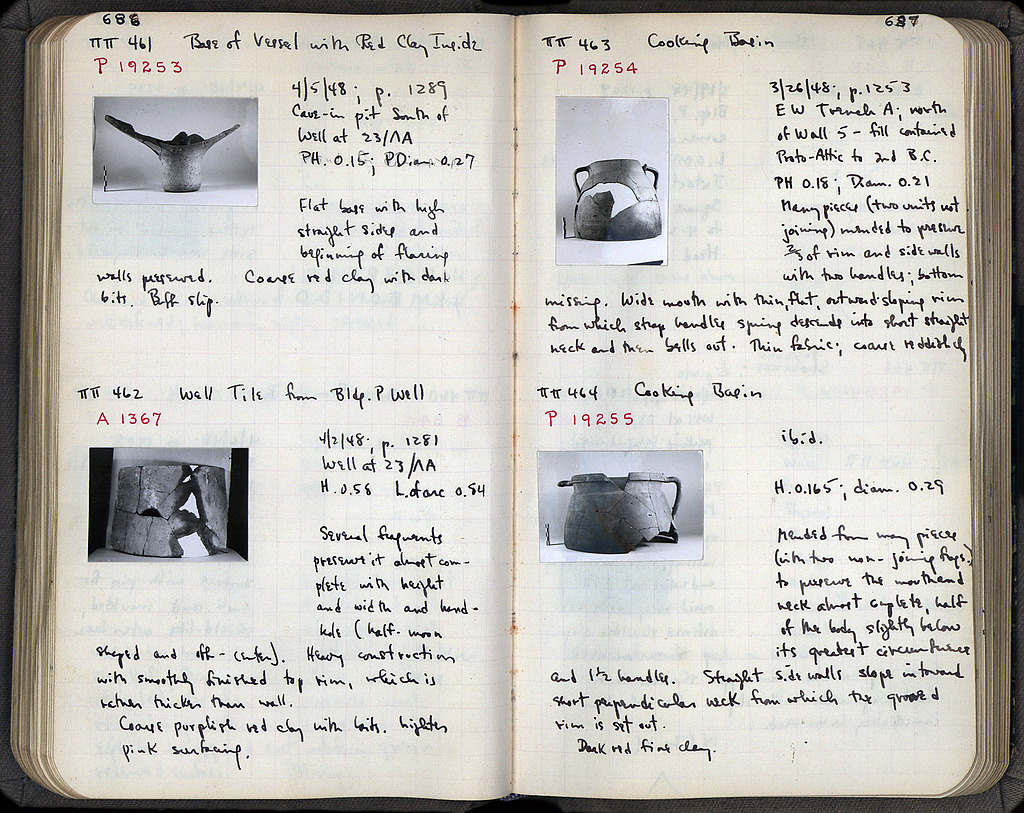 688
ΠΠ 461 Base of Vessel with Red Clay Inside
P 19253
4/5/48; p. 1289
Cave-in pit South of
Well at 23/ΛΑ
PH. 0.15; P.Diam. 0.27
Flat base with high
straight sides and
beginning of flaring
walls preserved. Coarse red clay with dark
bits. Buff slip.
ΠΠ 462 Well Tile from Bldg. P Well
A 1367
4/2/48; p. 1281
Well at 23/ΛΑ
H. 0.58 L. of arc 0.84
Several fragments
preserve it almost com-
plete with height
and width and hand-
hole (half-moon
shaped and off-center). Heavy construction
with smoothly finished top rim, which is
rather thicker than wall.
Coarse purplish red clay with bits. lighter
pink surfacing.
687
ΠΠ 463 Cooking Basin
P 19254
3/26/48; p. 1253
EW Trench A; north
of Wall 5 - fill contained
Proto-Attic to 2nd B.C.
PH 0.18; Diam. 0.21
Many pieces (two units not
joining) mended to preserve
2/3 of rim and side walls
with two handles; bottom
missing. Wide mouth with thin, flat, outward-sloping rim
from which strap handles spring descends into short straight
neck and then bells out. Thin fabric; coarse reddish clay
ΠΠ 464 Cooking Basin
P 19255
ibid.
H. 0.165; diam. 0.29
Mended from many pieces
(with two non-joining frags.)
to preserve the mouth and
neck almost complete, half
of the body slightly below
its greatest circumference
and 1 1/2 handles. Straight side walls slope in toward
short perpendicular neck from which the grooved
rim is set out.
Dark red fine clay.